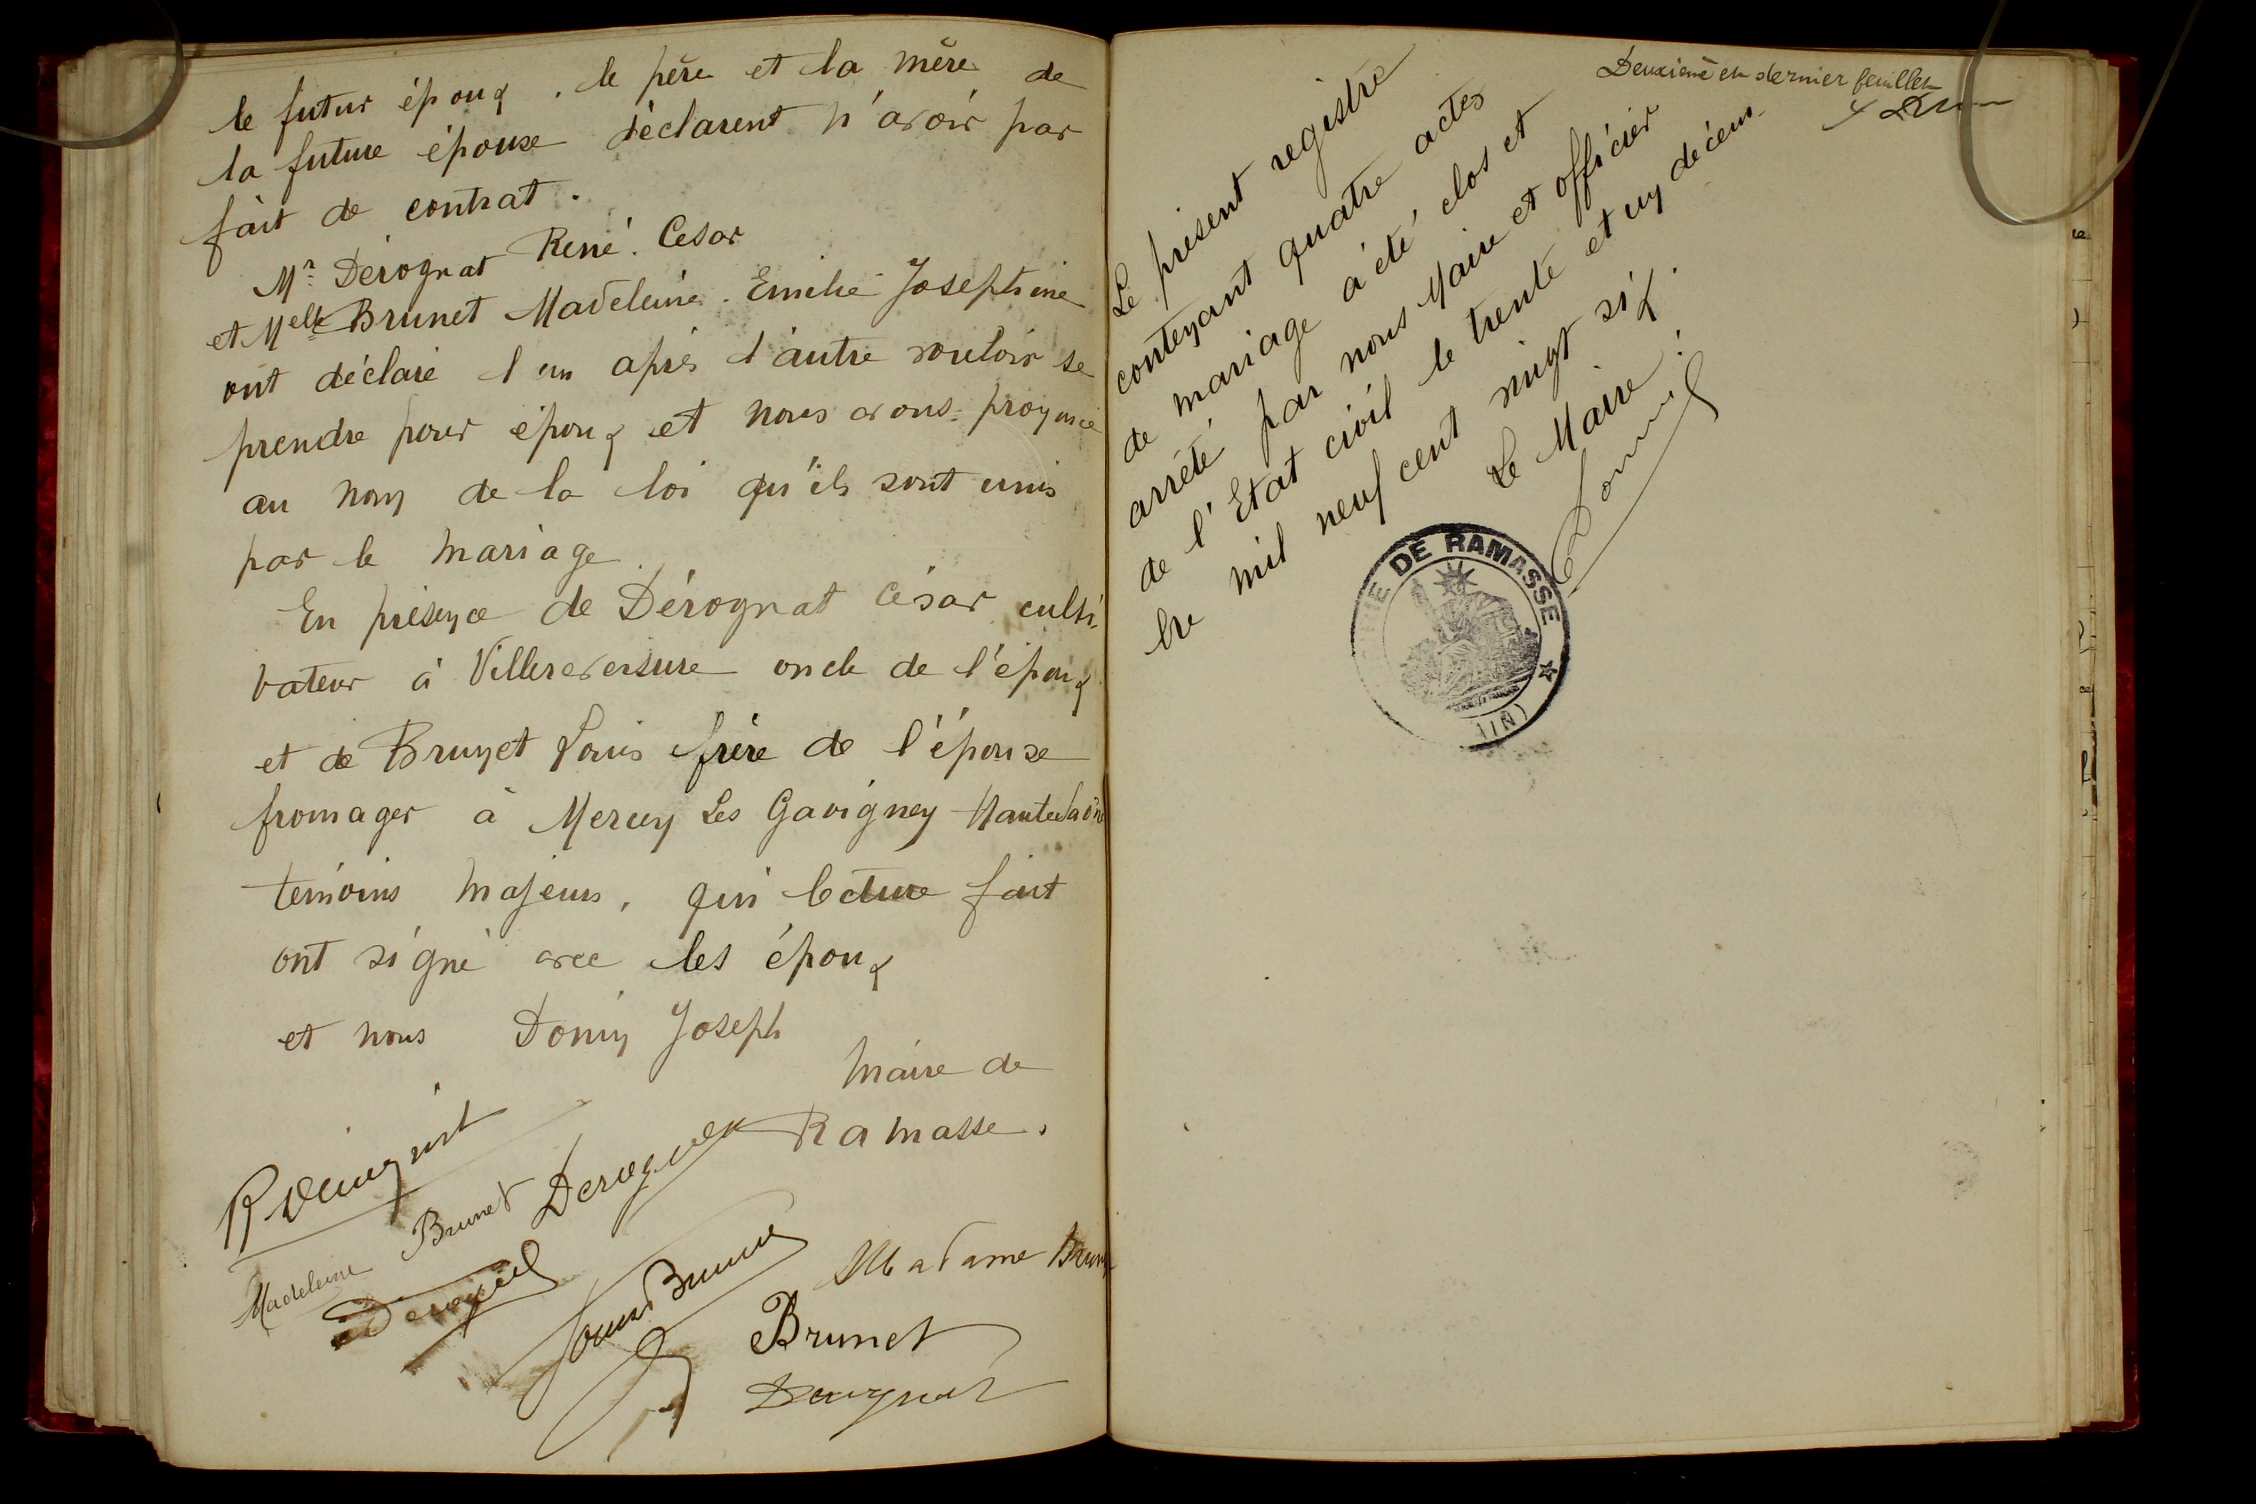 le futur époux. le père et la mère de
la future épouse déclarent n'avoir pas
fait de contrat.
Mr Dérognat René. Cesar
et Melle Brunet Madeleine. Emilie Josephine
ont déclaré l'un après l'autre vouloir se
prendre pour époux et nous avons prononcé
au nom de la loi qu'ils sont unis
par le mariage.
En présence de Dérognat César culti
vateur à Villereversure oncle de l'époux
et de Brunet Louis frère de l'épouse
fromager à Mercey Les Gavigney Haute Saône
temoins majeurs, qui lecture fait
ont signé avec les époux
et nous Domin Joseph
maire de
Ramasse.
R Derognat
Madeleine Brunet Derognat
Derognat
Louis Brunet
Madame Brunet
Brunet
Derognat
Deuxième et dernier feuillet
Le présent registre
contenant quatre actes
de mariage a été clos et
arrêté par nous Maire et officier
de l'Etat civil le trente et un décem
bre mil neuf cent vingt six.
Le Maire.
Domin
MAIRIE DE RAMASSE
(AIN)